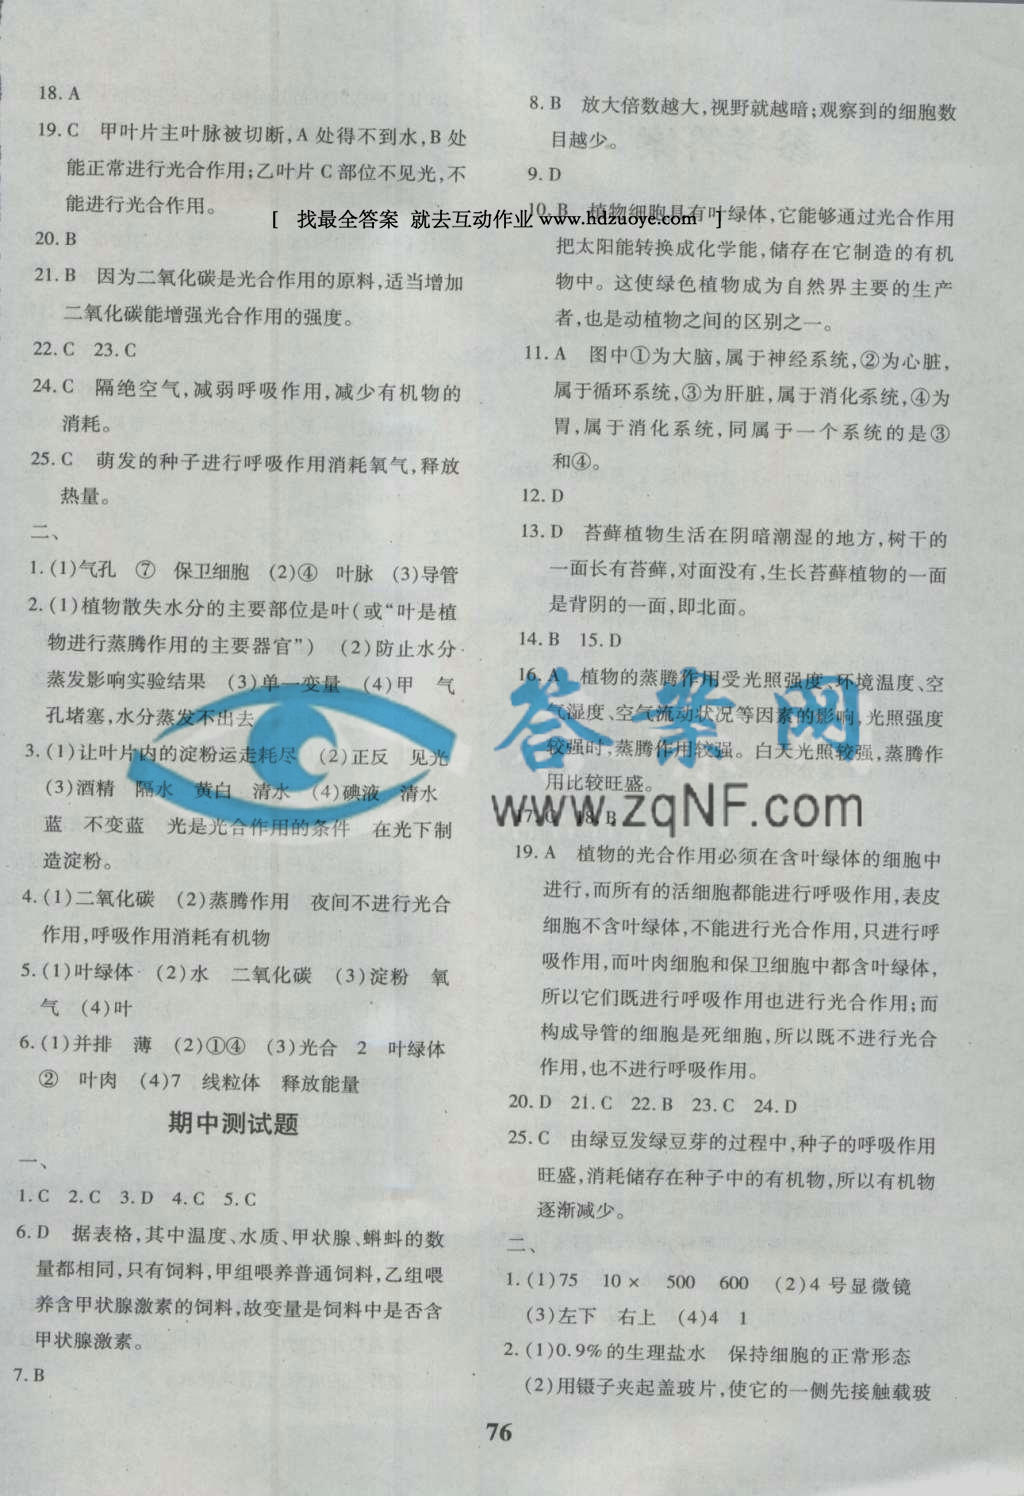 18. A
19. C　甲叶片主叶脉被切断,A 处得不到水,B 处
能正常进行光合作用;乙叶片 C 部位不见光,不
能进行光合作用。
[ 找最全答案 就去互动作业 www.hdzuoye.com ]
20. B
21. B　因为二氧化碳是光合作用的原料,适当增加
二氧化碳能增强光合作用的强度。
22. C　23. C
24. C　隔绝空气,减弱呼吸作用,减少有机物的
消耗。
25. C　萌发的种子进行呼吸作用消耗氧气,释放
热量。
二、
1. (1)气孔　⑦　保卫细胞　(2)④　叶脉　(3)导管
2. (1)植物散失水分的主要部位是叶(或“叶是植
物进行蒸腾作用的主要器官”)　(2)防止水分
蒸发影响实验结果　(3)单一变量　(4)甲　气
孔堵塞,水分蒸发不出去
3. (1)让叶片内的淀粉运走耗尽　(2)正反　见光
(3)酒精　隔水　黄白　清水　(4)碘液　清水
蓝　不变蓝　光是光合作用的条件　在光下制
造淀粉。
4. (1)二氧化碳　(2)蒸腾作用　夜间不进行光合
作用,呼吸作用消耗有机物
5. (1)叶绿体　(2)水　二氧化碳　(3)淀粉　氧
气　(4)叶
6. (1)并排　薄　(2)①④　(3)光合　2　叶绿体
②　叶肉　(4)7　线粒体　释放能量
期中测试题
一、
1. C　2. C　3. D　4. C　5. C
6. D　据表格,其中温度、水质、甲状腺、蝌蚪的数
量都相同,只有饲料,甲组喂养普通饲料,乙组喂
养含甲状腺激素的饲料,故变量是饲料中是否含
甲状腺激素。
7. B
8. B　放大倍数越大,视野就越暗;观察到的细胞数
目越少。
9. D
10. B　植物细胞具有叶绿体,它能够通过光合作用
把太阳能转换成化学能,储存在它制造的有机
物中。这使绿色植物成为自然界主要的生产
者,也是动植物之间的区别之一。
11. A　图中①为大脑,属于神经系统,②为心脏,
属于循环系统,③为肝脏,属于消化系统,④为
胃,属于消化系统,同属于一个系统的是③
和④。
12. D
13. D　苔藓植物生活在阴暗潮湿的地方,树干的
一面长有苔藓,对面没有,生长苔藓植物的一面
是背阴的一面,即北面。
14. B　15. D
16. A　植物的蒸腾作用受光照强度、环境温度、空
气湿度、空气流动状况等因素的影响,光照强度
较强时,蒸腾作用较强。白天光照较强,蒸腾作
用比较旺盛。
答案网
www.zqNF.com
17. C　18. B
19. A　植物的光合作用必须在含叶绿体的细胞中
进行,而所有的活细胞都能进行呼吸作用,表皮
细胞不含叶绿体,不能进行光合作用,只进行呼
吸作用,而叶肉细胞和保卫细胞中都含叶绿体,
所以它们既进行呼吸作用也进行光合作用;而
构成导管的细胞是死细胞,所以既不进行光合
作用,也不进行呼吸作用。
20. D　21. C　22. B　23. C　24. D
25. C　由绿豆发绿豆芽的过程中,种子的呼吸作用
旺盛,消耗储存在种子中的有机物,所以有机物
逐渐减少。
二、
1. (1)75　10×　500　600　(2)4 号显微镜
(3)左下　右上　(4)4　1
2. (1)0.9%的生理盐水　保持细胞的正常形态
(2)用镊子夹起盖玻片,使它的一侧先接触载玻
76